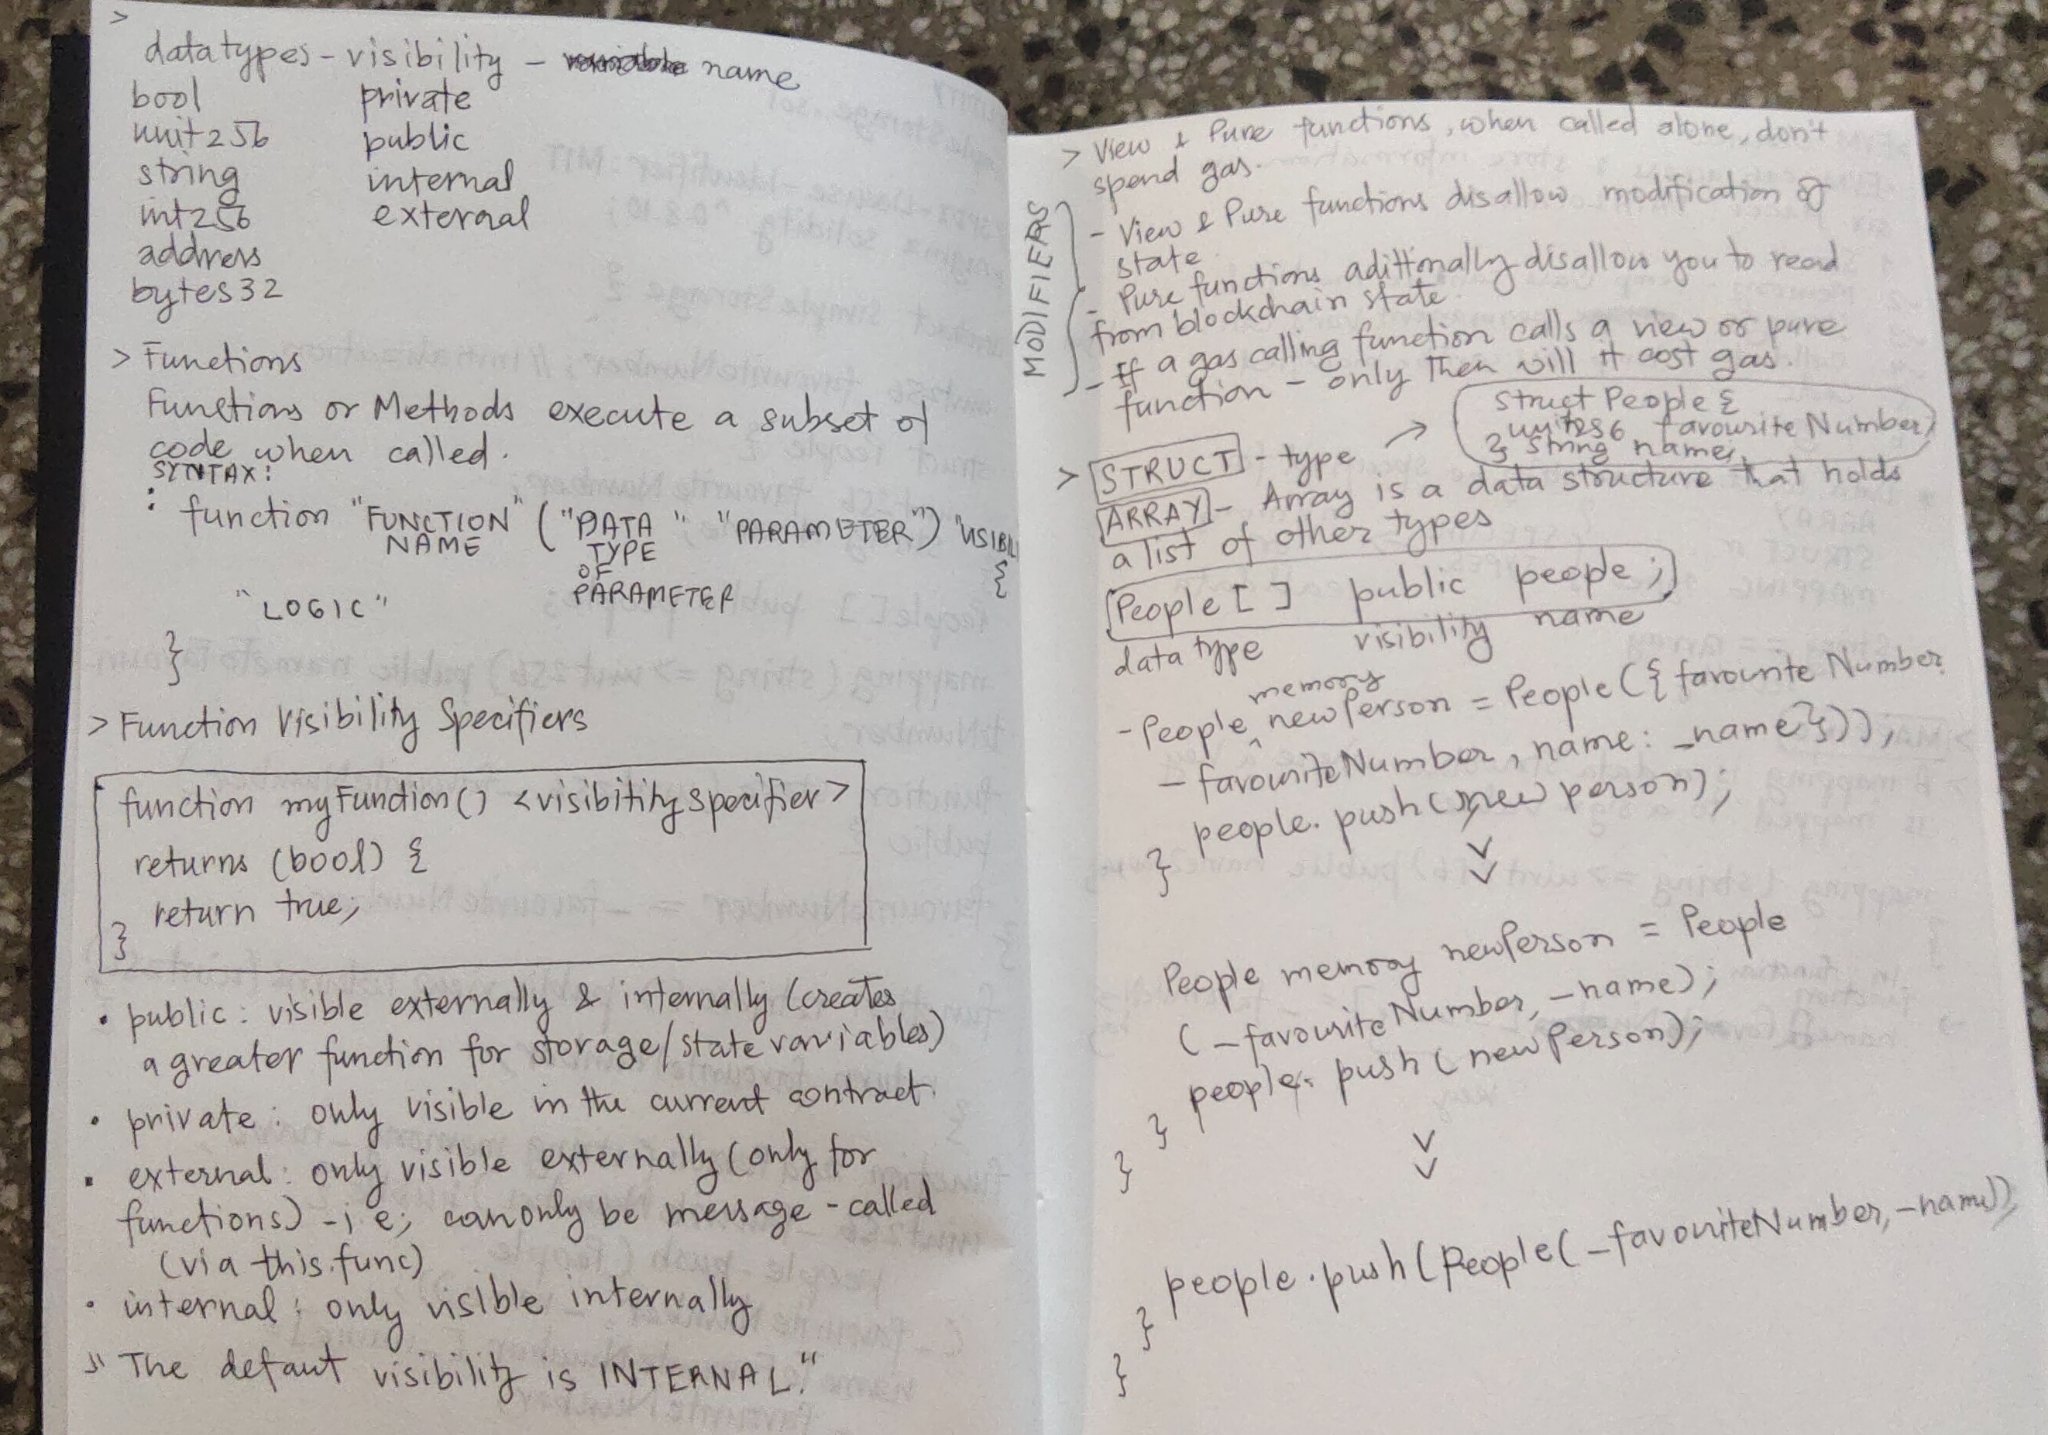 >
datatypes - visibility - name
bool private
unit256 public
string internal
int256 external
address
bytes32
> Functions
Functions or Methods execute a subset of
code when called.
SYNTAX:
: function "FUNCTION NAME" ("DATA TYPE OF PARAMETER", "PARAMETER") "VISIBILI
{
"LOGIC"
}
> Function Visibility Specifiers
function myFunction() <visibitity specifier>
returns (bool) {
return true;
}
• public: visible externally & internally (creates
a greater function for storage/state variables)
• private: only visible in the current contract.
• external: only visible externally (only for
functions) - i e; can only be message - called
(via this.func)
• internal: only visible internally
" The defaut visibility is INTERNAL."
> View & Pure functions, when called alone, don't
spend gas.
MODIFIERS
- View & Pure functions disallow modification of
state
- Pure functions adittonally disallow you to read
from blockchain state.
- If a gas calling function calls a view or pure
function - only then will it cost gas.
> STRUCT - type →
struct People {
unit256 favouriteNumber;
} string name;
ARRAY - Array is a data structure that holds
a list of other types
People [ ] public people;
data type visibility name
- People memory newPerson = People ({ favouriteNumber
_favouriteNumber, name: _name}));
people.push(new person);
}
People memory newPerson = People
(_favouriteNumber, _name);
people.push(newPerson);
}
}
people.push(People(_favouriteNumber,_name));
}
}